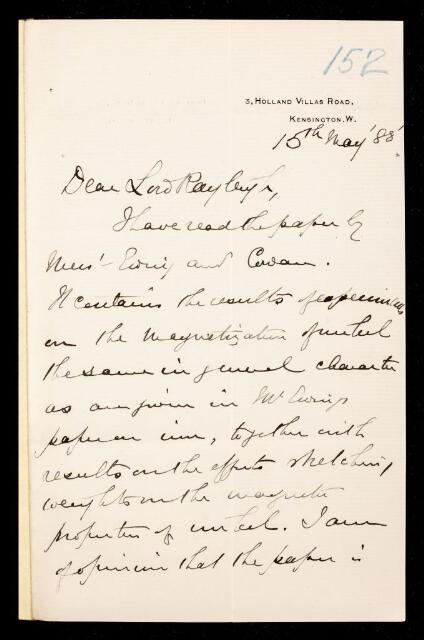 152
3, HOLLAND VILLAS ROAD,
KENSINGTON. W.
15th May '88
Dear Lord Rayleigh,
I have read the paper by
Mess' Ewing and Cowan.
It contains the results of experiments
on the magnetization of nickel
the same in general character
as are given in Mr Ewing's
paper on iron, together with
results on the effects stretching
weights on the magnetic
properties of nickel. I am
of opinion that the paper is